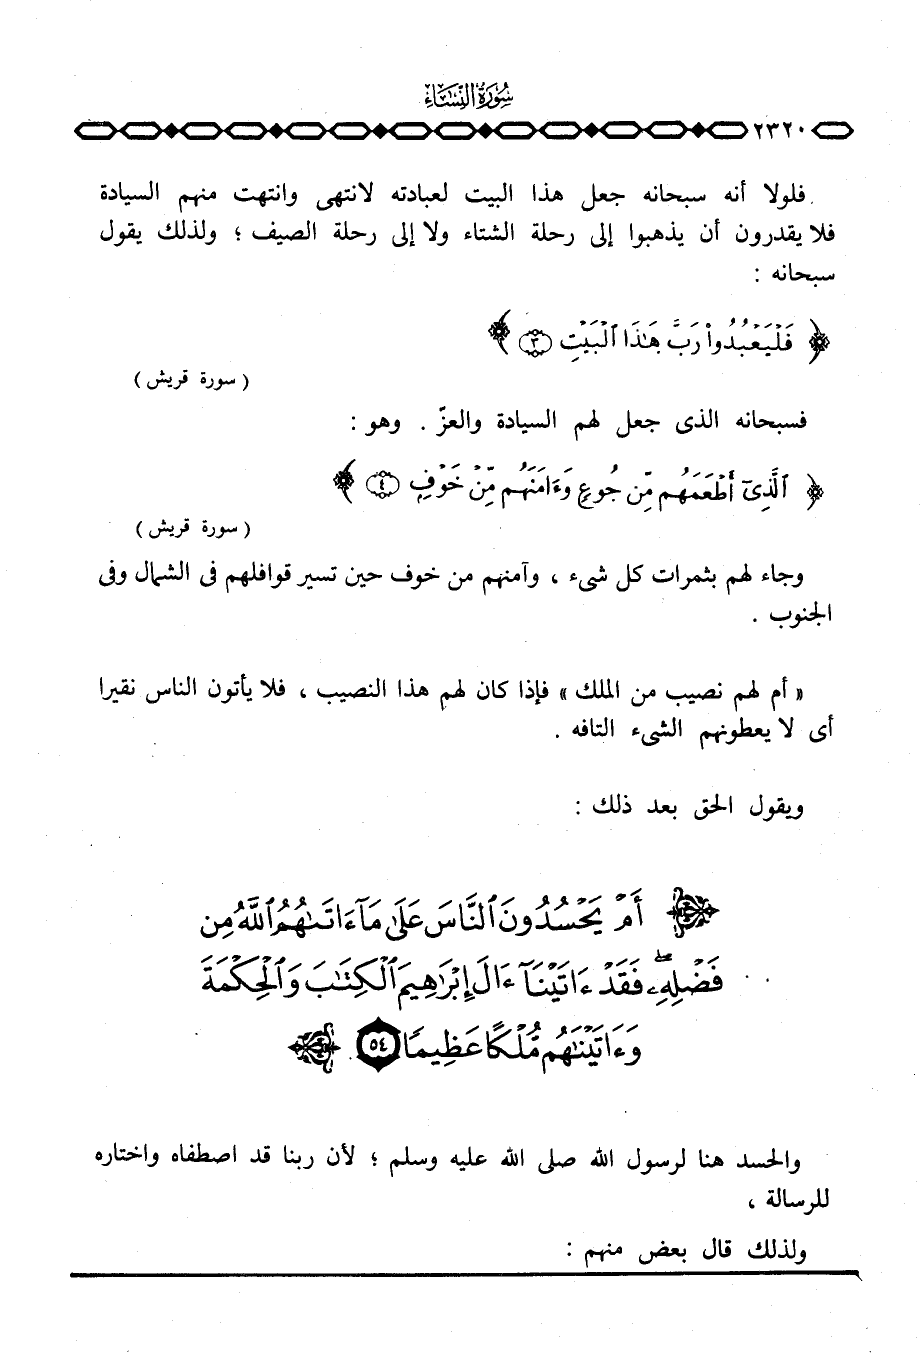 سُورَةُ النِّسَاءِ
٢٣٢٠
فلولا أنه سبحانه جعل هذا البيت لعبادته لانتهى وانتهت منهم السيادة
فلا يقدرون أن يذهبوا إلى رحلة الشتاء ولا إلى رحلة الصيف ؛ ولذلك يقول
سبحانه :
﴿ فَلْيَعْبُدُوا۟ رَبَّ هَـٰذَا ٱلْبَيْتِ ۝٣ ﴾
( سورة قريش )
فسبحانه الذى جعل لهم السيادة والعزّ . وهو :
﴿ ٱلَّذِىٓ أَطْعَمَهُم مِّن جُوعٍ وَءَامَنَهُم مِّنْ خَوْفٍۭ ۝٤ ﴾
( سورة قريش )
وجاء لهم بثمرات كل شىء ، وآمنهم من خوف حين تسير قوافلهم فى الشمال وفى
الجنوب .
« أم لهم نصيب من الملك » فإذا كان لهم هذا النصيب ، فلا يأتون الناس نقيرا
أى لا يعطونهم الشىء التافه .
ويقول الحق بعد ذلك :
﴿ أَمْ يَحْسُدُونَ ٱلنَّاسَ عَلَىٰ مَآ ءَاتَىٰهُمُ ٱللَّهُ مِن
فَضْلِهِۦ ۖ فَقَدْ ءَاتَيْنَآ ءَالَ إِبْرَٰهِيمَ ٱلْكِتَـٰبَ وَٱلْحِكْمَةَ
وَءَاتَيْنَـٰهُم مُّلْكًا عَظِيمًا ۝٥٤ ﴾
والحسد هنا لرسول الله صلى الله عليه وسلم ؛ لأن ربنا قد اصطفاه واختاره
للرسالة ،
ولذلك قال بعض منهم :